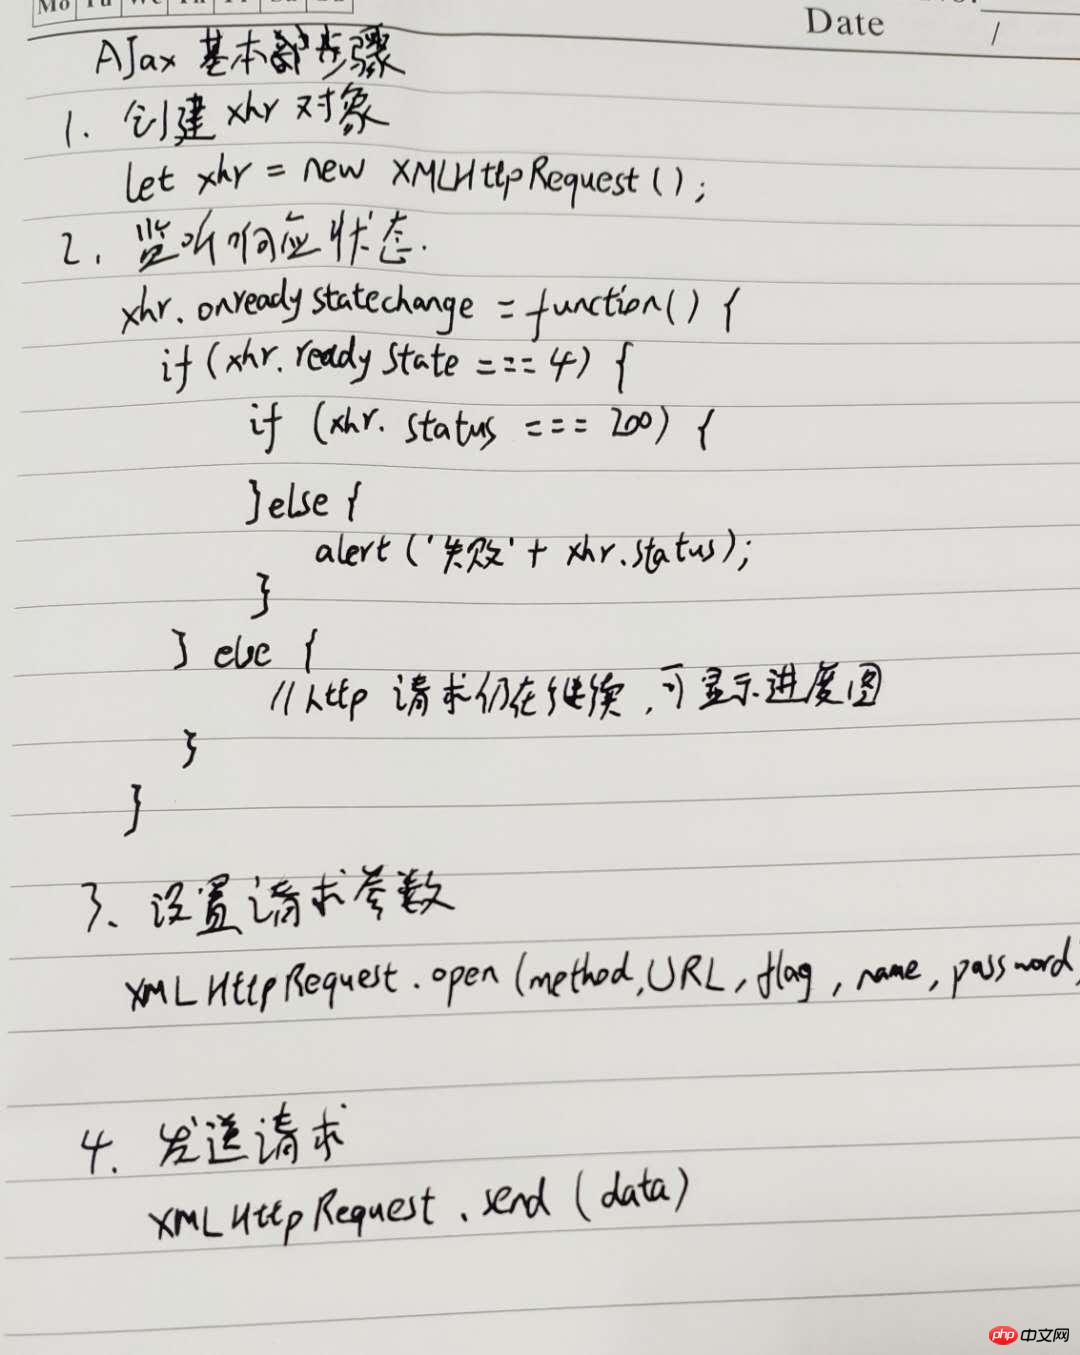 Mo Tu We Th Fr Sa Su
Date /
AJax 基本步骤
1. 创建 xhr 对象
let xhr = new XMLHttpRequest();
2. 监听响应状态.
xhr.onreadystatechange = function() {
if (xhr.readyState === 4) {
if (xhr.status === 200) {
}else {
alert ('失败' + xhr.status);
}
} else {
//http 请求仍在继续,可显示进度图
}
}
3、设置请求参数
XMLHttpRequest.open (method,URL,flag,name,password
4. 发送请求
XMLHttpRequest.send (data)
php 中文网